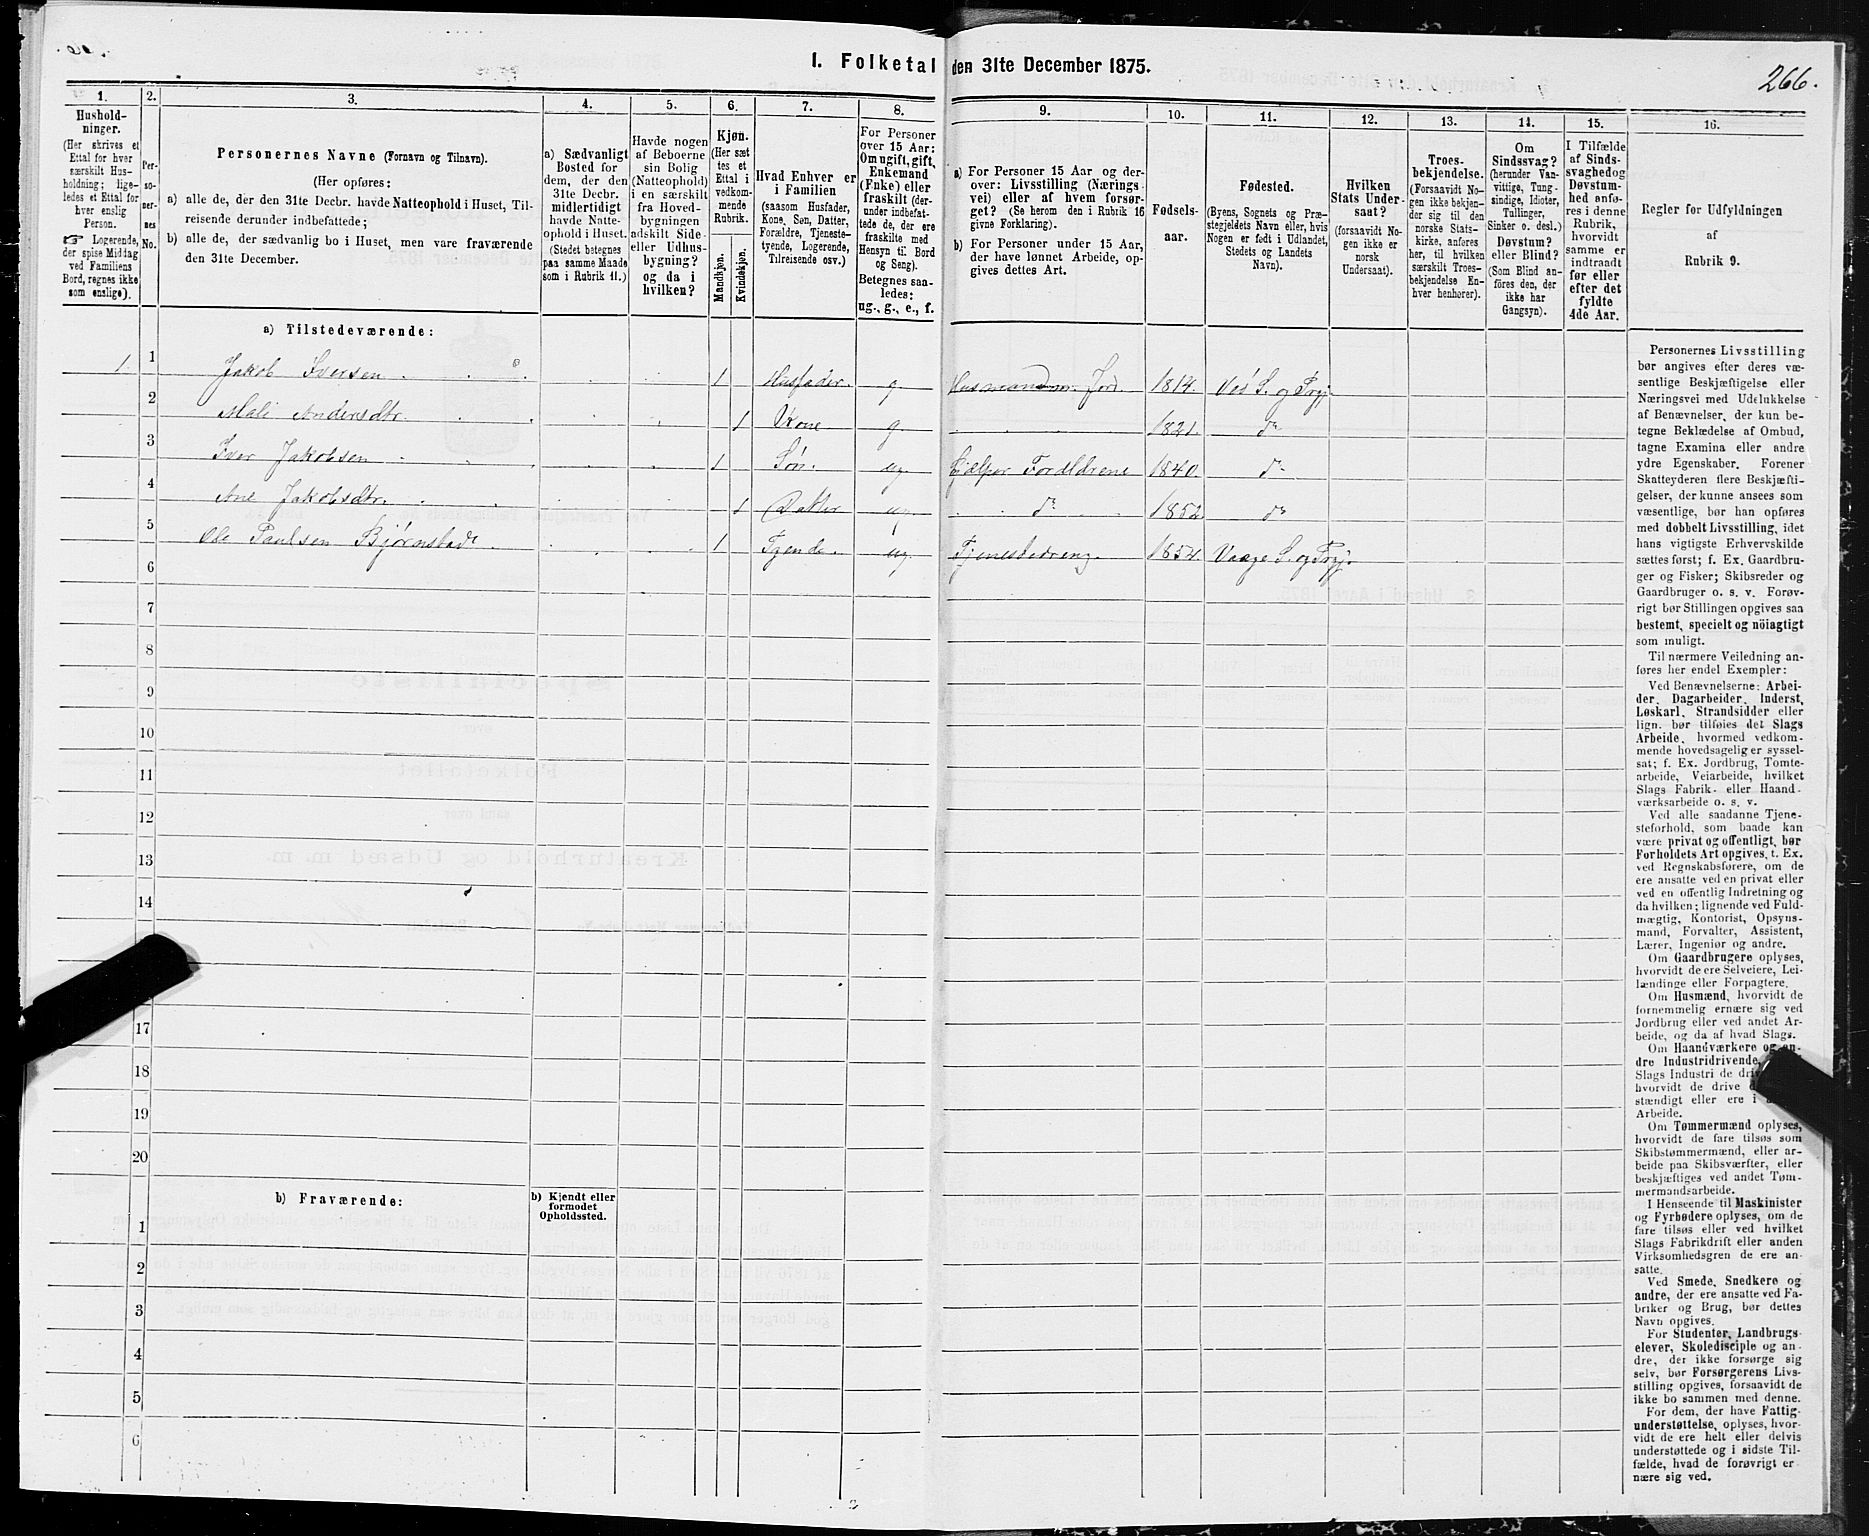 I. Folketal den 31te December 1875.
266.
1.
Hushold-
ninger.
(Her skrives et
Ettal for hver
særskilt Hus-
holdning; lige-
ledes et Ettal for
hver enslig
Person.
☞ Logerende,
der spise Middag
ved Familiens
Bord, regnes ikke
som enslige).
2.
Per-
so-
ner-
nes
No.
3.
Personernes Navne (Fornavn og Tilnavn).
(Her opføres:
a) alle de, der den 31te Decbr. havde Natteophold i Huset, Til-
reisende derunder indbefattede;
b) alle de, der sædvanlig bo i Huset, men vare fraværende
den 31te December.
4.
a) Sædvanligt
Bosted for
dem, der den
31te Decbr.
midlertidigt
havde Natte-
ophold i Huset.
(Stedet betegnes
paa samme Maade
som i Rubrik 11.)
5.
Havde nogen
af Beboerne
sin Bolig
(Natteophold)
i en særskilt
fra Hoved-
bygningen
adskilt Side-
eller Udhus-
bygning?
og da i
hvilken?
6.
Kjøn.
(Her sæt
tes et
Ettal i
vedkom-
mende
Rubrik.
Mandskjøn.
Kvindekjøn.
7.
Hvad Enhver er
i Familien
(saasom Husfader,
Kone, Søn, Datter,
Forældre, Tjeneste-
tyende, Logerende,
Tilreisende osv.)
8.
For Personer
over 15 Aar:
Om ugift, gift,
Enkemand
(Enke) eller
fraskilt (der-
under indbefat-
tede de, der ere
fraskilte med
Hensyn til Bord
og Seng).
Betegnes saa-
ledes:
ug., g., e., f.
9.
a) For Personer 15 Aar og der-
over: Livsstilling (Nærings-
vei) eller af hvem forsør-
get? (Se herom den i Rubrik 16
givne Forklaring).
b) For Personer under 15 Aar,
der have lønnet Arbeide, op-
gives dettes Art.
10.
Fødsels-
aar.
11.
Fødested.
(Byens, Sognets og Præ-
stegjeldets Navn eller, hvis
Nogen er født i Udlandet,
Stedets og Landets
Navn).
12.
Hvilken
Stats Under-
saat?
(forsaavidt No-
gen ikke er
norsk
Undersaat).
13.
Troes-
bekjendelse.
(Forsaavidt No-
gen ikke bekjen-
der sig til den
norske Stats-
kirke, anføres
her, til hvilken
særskilt Troes-
bekjendelse En-
hver henhører).
14.
Om
Sindssvag?
(herunder Van-
vittige, Tung-
sindige, Idioter,
Tullinger,
Sinker o. desl.)
Døvstum?
eller Blind?
(Som Blind an-
föres den, der
ikke har
Gangsyn).
15.
I Tilfælde
af Sinds-
svaghed og
Døvstum-
hed anfø-
res i denne
Rubrik,
hvorvidt
samme er
indtraadt
før eller
efter det
fyldte
4de Aar.
16.
Regler for Udfyldningen
af
Rubrik 9.
a) Tilstedeværende:
1 1 Jakob Iversen 1 Husfader g Husmand m. Jord 1814. Vås S. og Prgj
2 Mali Andersdtr. 1 Kone g. 1821. do
3 Iver Jakobsen 1 Søn ug Hjelper Foreldrene 1840. do
4 Ane Jakobsdtr. 1 Datter ug. do 1852 do
5 Ole Paulsen Bjørnstad 1 Tyende. ug. Tjenestedreng. 1854. Vaage S. og Prgj.
6
7
8
9
10
11
12
13
14
17
18
19
20
b) Fraværende:
b) Kjendt eller
formodet
Opholdssted.
1
2
3
4
5
6
Personernes Livsstilling
bør angives efter deres væ-
sentlige Beskjæftigelse eller
Næringsvei med Udelukkelse
af Benævnelser, der kun be-
tegne Beklædelse af Ombud,
tagne Examina eller andre
ydre Egenskaber. Forener
Skatteyderen flere Beskjæfti-
gelser, der kunne ansees som
væsentlige, bør han opføres
med dobbelt Livsstilling, idet
hans vigtigste Erhvervskilde
sættes først; f. Ex. Gaardbru-
ger og Fisker; Skibsreder og
Gaardbruger o. s. v. Forøv-
rigt bør Stillingen opgives saa
bestemt, specielt og nöiagtigt
som muligt.
Til nærmere Veiledning an-
føres her endel Exempler:
Ved Benævnelserne: Arbei-
der, Dagarbeider, Inderst,
Løskarl, Strandsidder eller
lign. bør tilføies det Slags
Arbeide, hvormed vedkom-
mende hovedsagelig er syssel-
sat; f. Ex. Jordbrug, Tomte-
arbeide, Veiarbeide, hvilket
Slags Fabrik- eller Haand-
værksarbeide o. s. v.
Ved alle saadanne Tjene-
steforhold, som baade kan
være privat og offentligt, bør
Forholdets Art opgives, t. Ex.
ved Regnskabsførere, om de
ere ansatte ved en privat eller
ved en offentlig Indretning og
da hvilken; lignende ved Fuld-
mægtig, Kontorist, Opsyns-
mand, Forvalter, Assistent,
Lærer, Ingeniør og andre.
Om Gaardbrugere oplyses,
hvorvidt de ere Selveiere, Lei-
lændinge eller Forpagtere.
Om Husmænd, hvorvidt de
fornemmelig ernære sig ved
Jordbrug eller ved andet Ar-
beide, og da af hvad Slags.
Om Haandværkere og an-
dre Industridrivende,
Slags Industri de dri
hvorvidt de drive
stændigt eller ere i
Arbeide.
Om Tømmermænd oplyses,
hvorvidt de fare tilsøs som
Skibstømmermænd, eller ar-
beide paa Skibsværfter, eller
beskjæftiges ved andet Tøm-
mermandsarbeide.
I Henseende til Maskinister
og Fyrbødere oplyses, om de
fare tilsøs eller ved hvilket
Slags Fabrikdrift eller anden
Virksomhedsgren de ere an-
satte.
Ved Smede, Snedkere og
andre, der ere ansatte ved Fa-
briker og Brug, bør dettes
Navn opgives.
For Studenter, Landbrugs-
elever, Skoledisciple og an-
dre, der ikke forsørge sig
selv, bør Forsørgerens Livs-
stilling opgives, forsaavidt de
ikke bo sammen med denne.
For dem, der have Fattig-
understøttelse, oplyses, hvor-
vidt de ere helt eller delvis
understøttede og i sidste Til-
fælde, hvad de forøvrigt er-
nære sig ved.